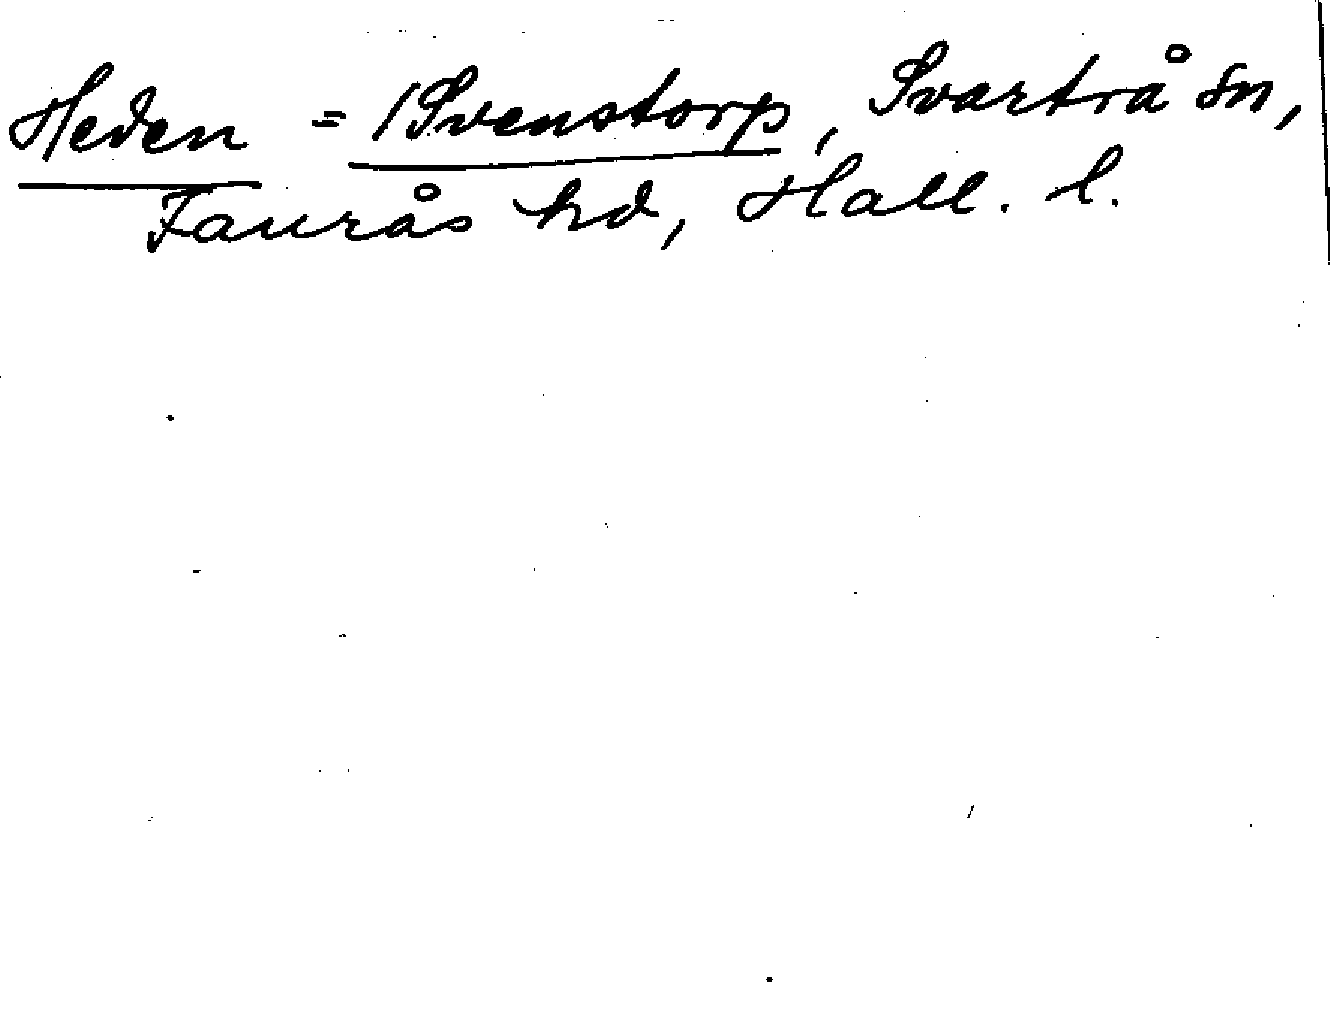 Heden = /Svenstorp, Svartrå sn,
Faurås hd, Hall. l.